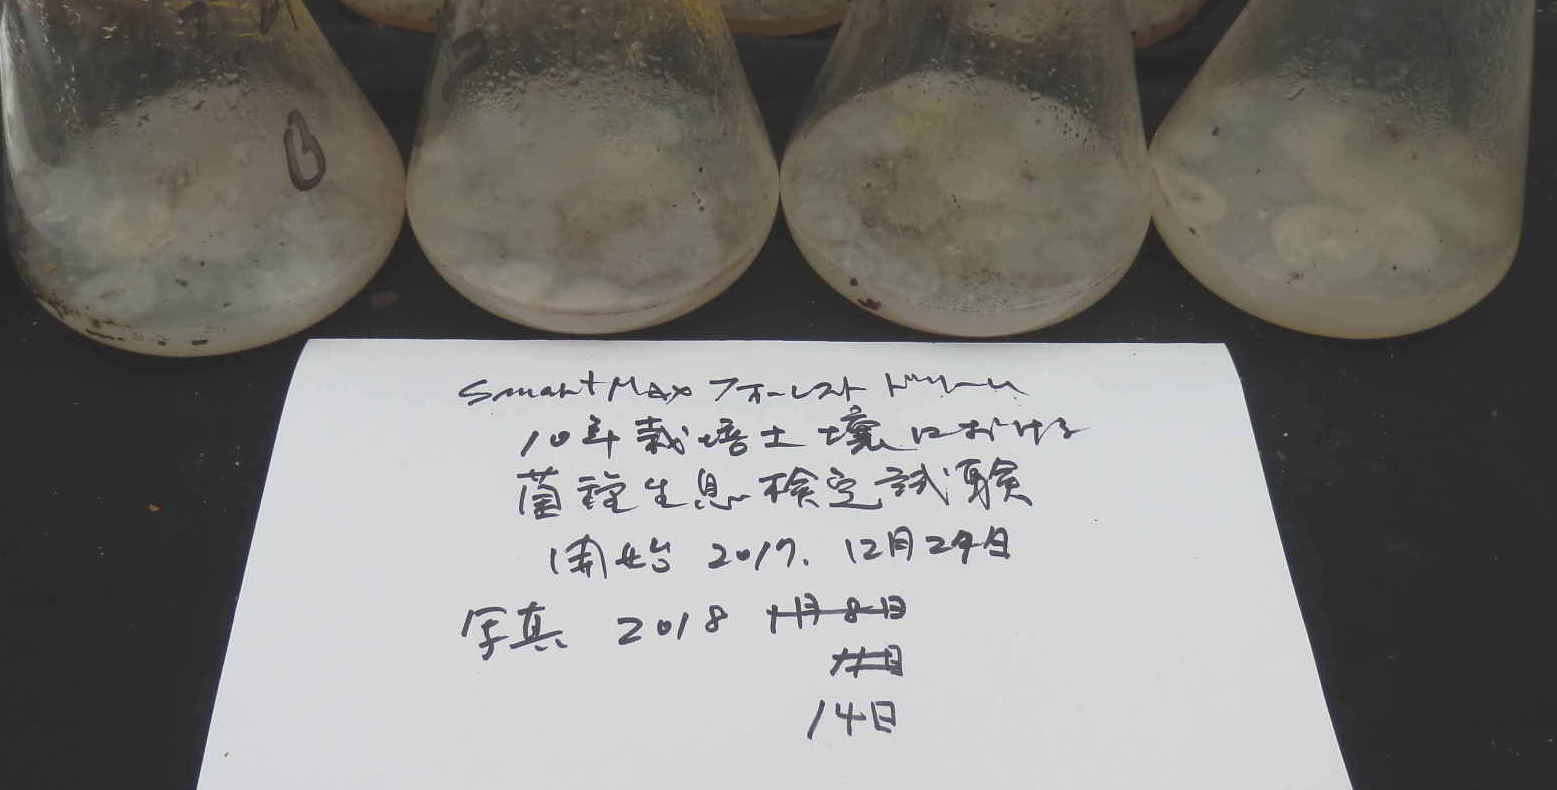 B
SmartMax フォーレスト ドリーム
10年栽培土壌における
菌種生息検定試験
開始 2017. 12月24日
写真 2018 1月8日
14日